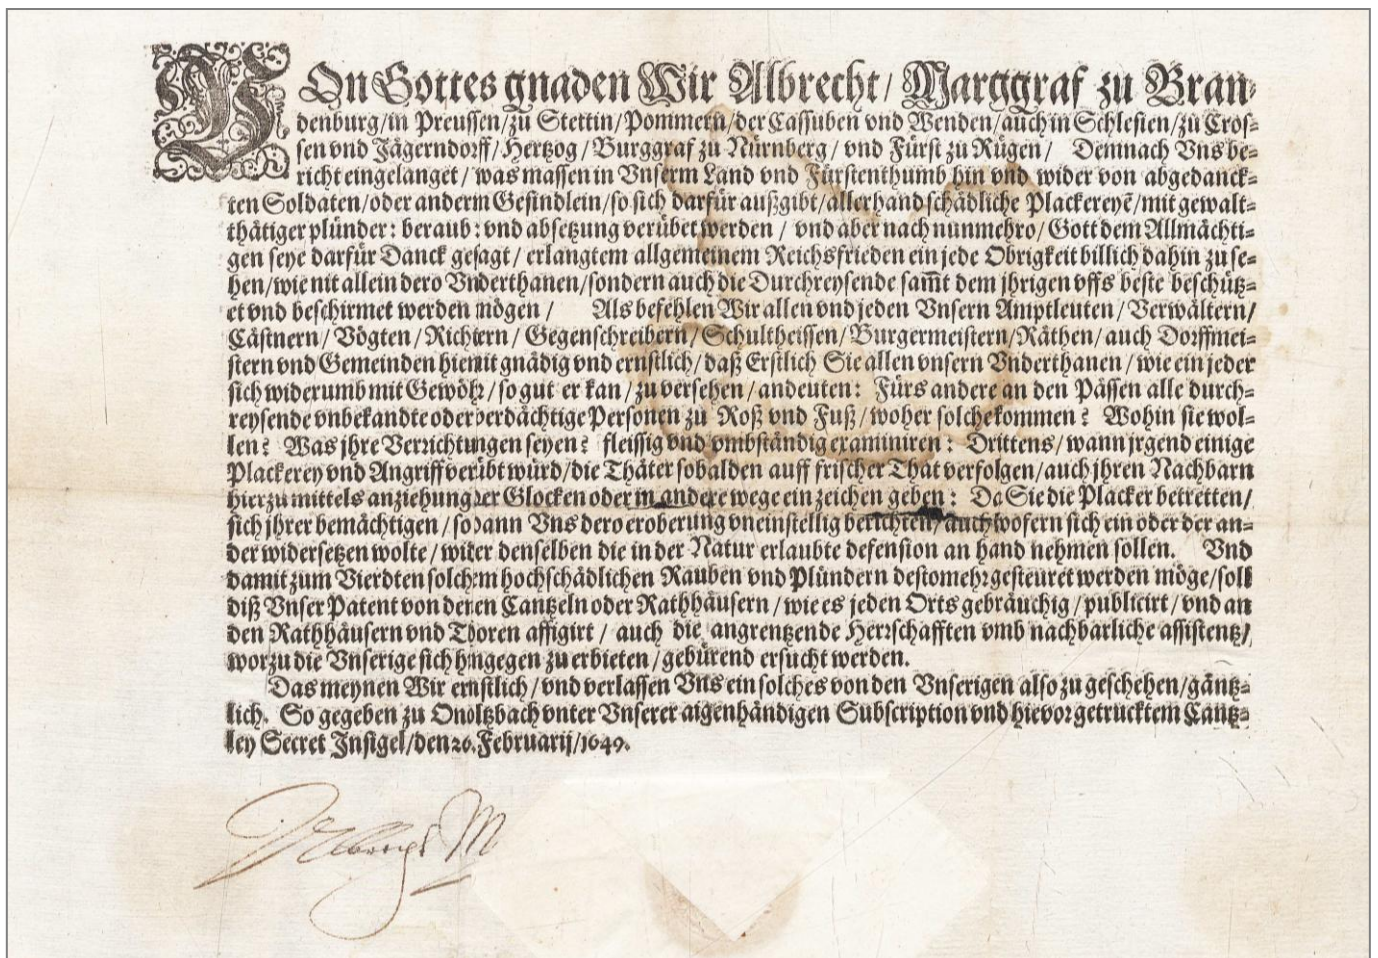 VOn Gottes gnaden Wir Albrecht/ Marggraf zu Bran-
denburg/in Preussen/zu Stettin/Pommern/der Cassuben vnd Wenden/auch in Schlesien/zu Cros-
sen vnd Jägerndorff/Hertzog/Burggraf zu Nürnberg/vnd Fürst zu Rügen/ Demnach Vns be-
richt eingelanget/was massen in Vnserm Land vnd Fürstenthumb hin vnd wider von abgedanck-
ten Soldaten/oder anderm Gesindlein/so sich darfür außgibt/allerhand schädliche Plackereyẽ/mit gewalt-
thätiger plünder: beraub: vnd absetzung verübet werden/ vnd aber nach nunmehro/Gott dem Allmächti-
gen seye darfür Danck gesagt/erlangtem allgemeinem Reichsfrieden ein jede Obrigkeit billich dahin zu se-
hen/wie nit allein dero Vnderthanen/sondern auch die Durchreysende sam̃t dem jhrigen vffs beste beschütz-
et vnd beschirmet werden mögen/ Als befehlen Wir allen vnd jeden Vnsern Amptleuten/Verwältern/
Cästnern/Vögten/Richtern/Gegenschreibern/Schultheissen/Burgermeistern/Räthen/auch Dorffmei-
stern vnd Gemeinden hiemit gnädig vnd ernstlich/daß Erstlich Sie allen vnsern Vnderthanen/wie ein jeder
sich widerumb mit Gewöhr/so gut er kan/zu versehen/andeuten: Fürs andere an den Pässen alle durch-
reysende vnbekandte oder verdächtige Personen zu Roß vnd Fuß/woher solche kommen? Wohin sie wol-
len? Was jhre Verrichtungen seyen? fleissig vnd vmbständig examiniren: Drittens/wann jrgend einige
Plackerey vnd Angriff verübt würd/die Thäter sobalden auff frischer That verfolgen/auch jhren Nachbarn
hierzu mittels anziehung der Glocken oder in andere wege ein zeichen geben: Da Sie die Placker betretten/
sich jhrer bemächtigen/sodann Vns dero eroberung vneinstellig berichten/auch wofern sich ein oder der an-
der widersetzen wolte/wider denselben die in der Natur erlaubte defension an hand nehmen sollen. Vnd
damit zum Vierdten solchem hochschädlichen Rauben vnd Plündern destomehr gesteuret werden möge/soll
diß Vnser Patent von denen Cantzeln oder Rathhäusern/wie es jeden Orts gebräuchig/publicirt/vnd an
den Rathhäusern vnd Thoren affigirt/ auch die angrentzende Herrschafften vmb nachbarliche assistentz/
worzu die Vnserige sich hingegen zu erbieten/gebürend ersucht werden.
Das meynen Wir ernstlich/vnd verlassen Vns ein solches von den Vnserigen also zu geschehen/gäntz-
lich. So gegeben zu Onoltzbach vnter Vnserer aigenhändigen Subscription vnd hievor getrucktem Cantz-
ley Secret Insigel/den 26. Februarij/1649.
Albrecht M